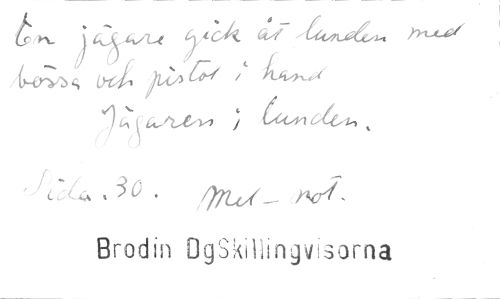 En jägare gick åt lunden med
bössa och pistol i hand
Jägaren i lunden.
Sida. 30. Mel - not.
Brodin DgSkillingvisorna